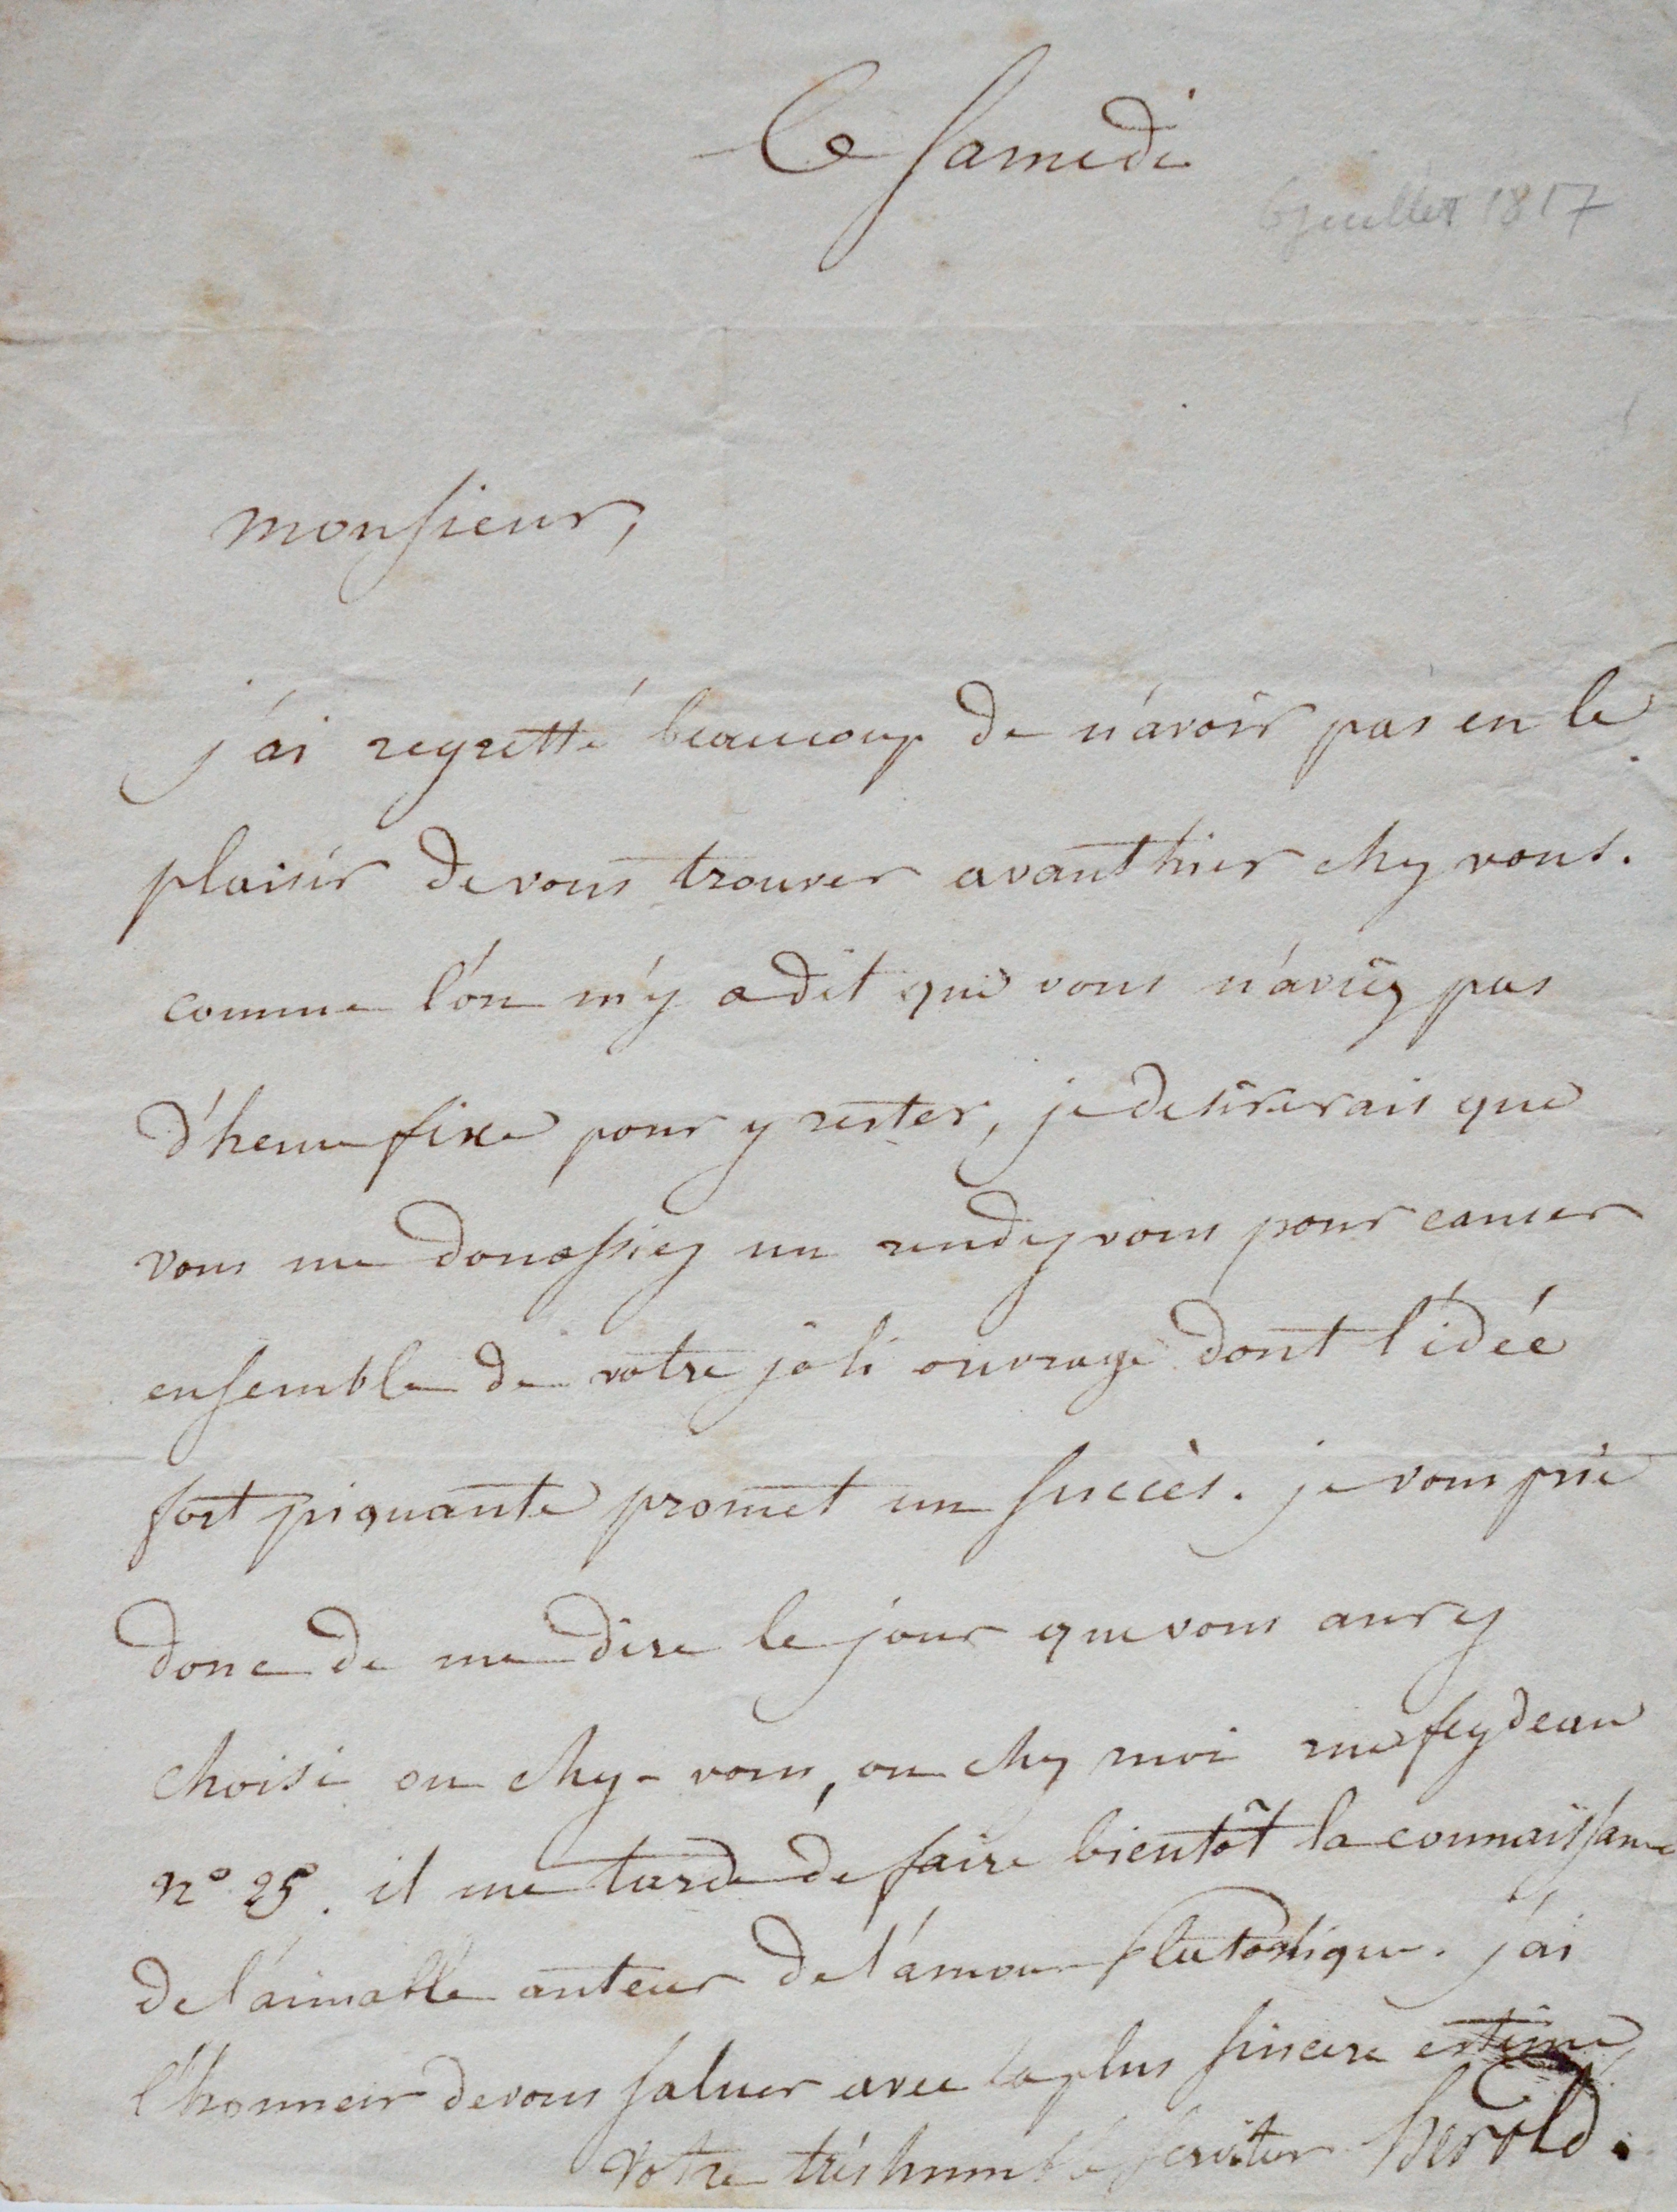 Ce Samedi
6 juillet 1817
monsieur,
j'ai regretté beaucoup de n'avoir pas eu le
plaisir de vous trouver avanthier chez vous.
comme l'on m'y a dit que vous n'aviez pas
d'heure fixe pour y rester, je desirerais que
vous me donassiez un rendez vous pour causer
ensemble de votre joli ouvrage dont l'idée
fort piquante promet un succès. je vous prie
donc de me dire le jour que vous aurez
choisi ou chez-vous, ou chez moi rue feydeau
n° 25. il me tarde de faire bientôt la connaissance
de l'aimable auteur de l'amour platonique. j'ai
l'honneur de vous saluer avec la plus sincere estime
Votre très humble serviteur herold.